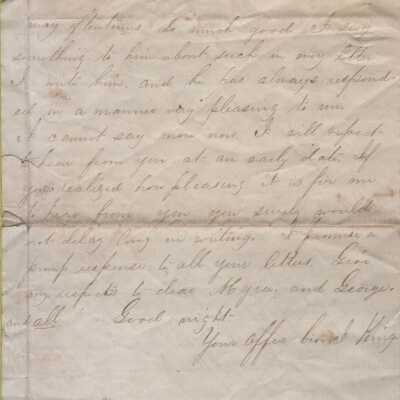 may oftentimes do much good I say
something to him about such in my letter
I write him, and he has always respond-
ed in a manner very pleasing to me
I cannot say more now. I will expect
to hear from you at an early date. If
you realized how pleasing it is for me
to hear from you you surely would
not delay long in writing. I promise a
response to all your letters. Give
my respects to dear Myra, and George.
and all Good night
Your King